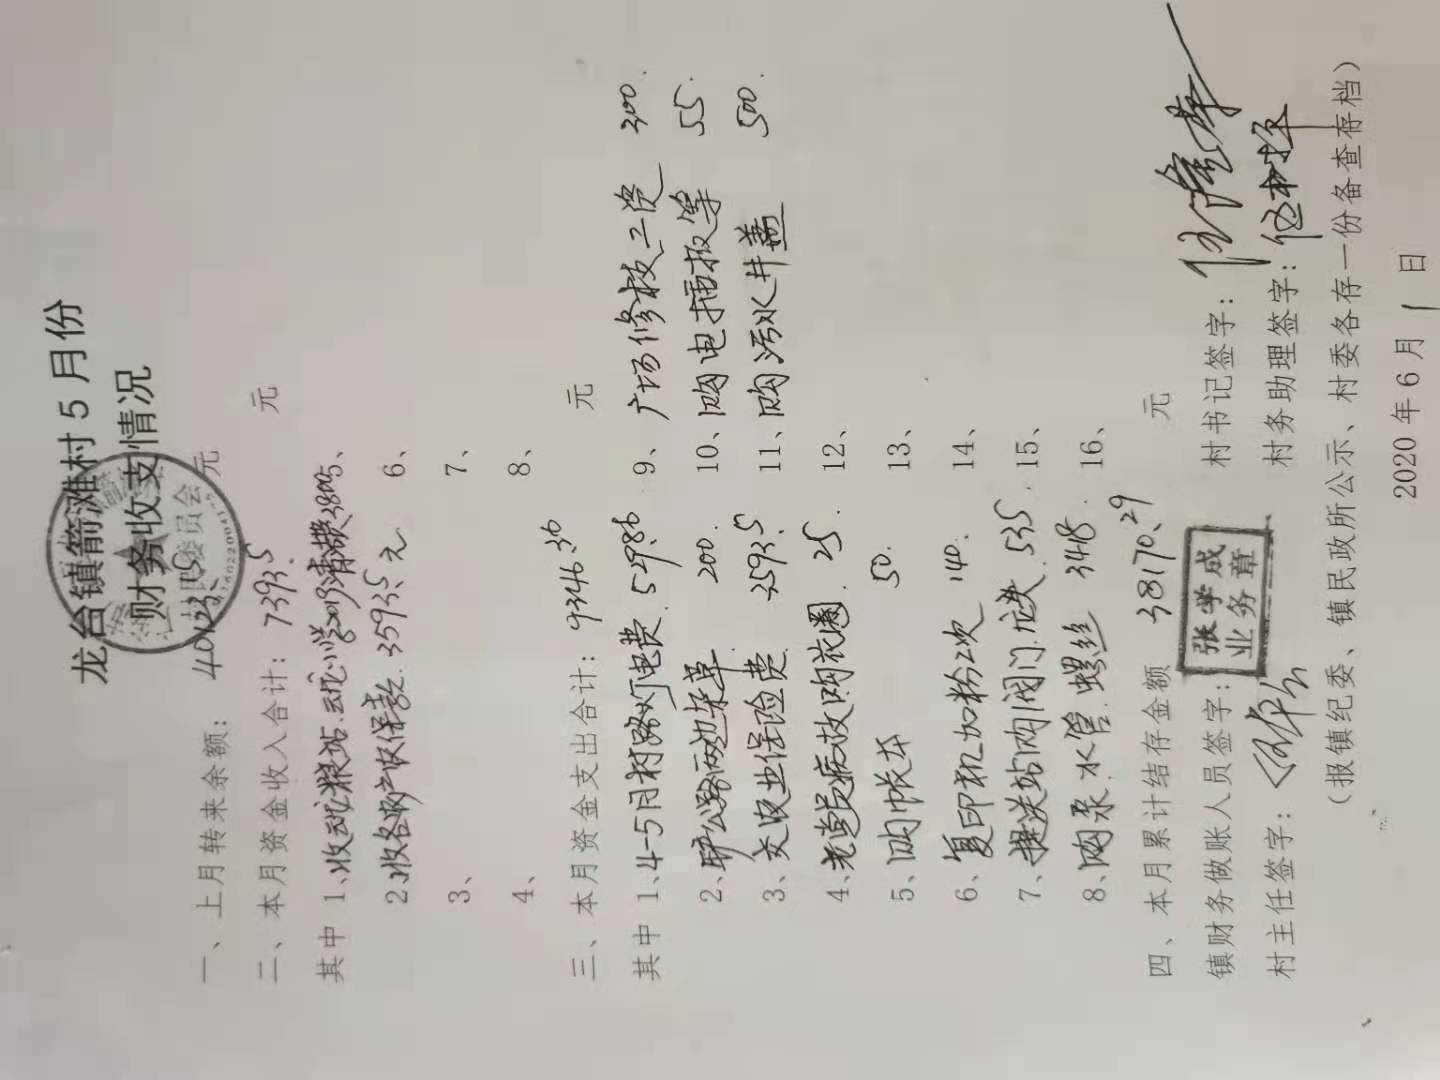 龙台镇箭滩村5月份
财务收支情况
一、上月转来余额：40123.15元
二、本月资金收入合计：7393.5元
其中 1、收 粮站 小学 清 费3800 5、
2、收各 产 保 款 3593.5元 6、
3、 7、
4、 8、
三、本月资金支出合计：9346.36元
其中 1、4-5月村路灯电费 549.86 9、广场修枝工资 300
2、铲公路两边杂草 200 10、购电 等 55
3、交农业保险费 3593.5 11、购污水井盖 500
4、老党员病故购花圈 25 12、
5、购帐本 50 13、
6、复印机加粉2次 140 14、
7、提灌站购阀门 535 15、
8、购 水管 螺丝 348 16、
四、本月累计结存金额 38170.29 元
镇财务做账人员签字：张学成业务章 村书记签字：
村主任签字： 村务助理签字：
（报镇纪委、镇民政所公示、村委各存一份备查存档）
2020年6月1日